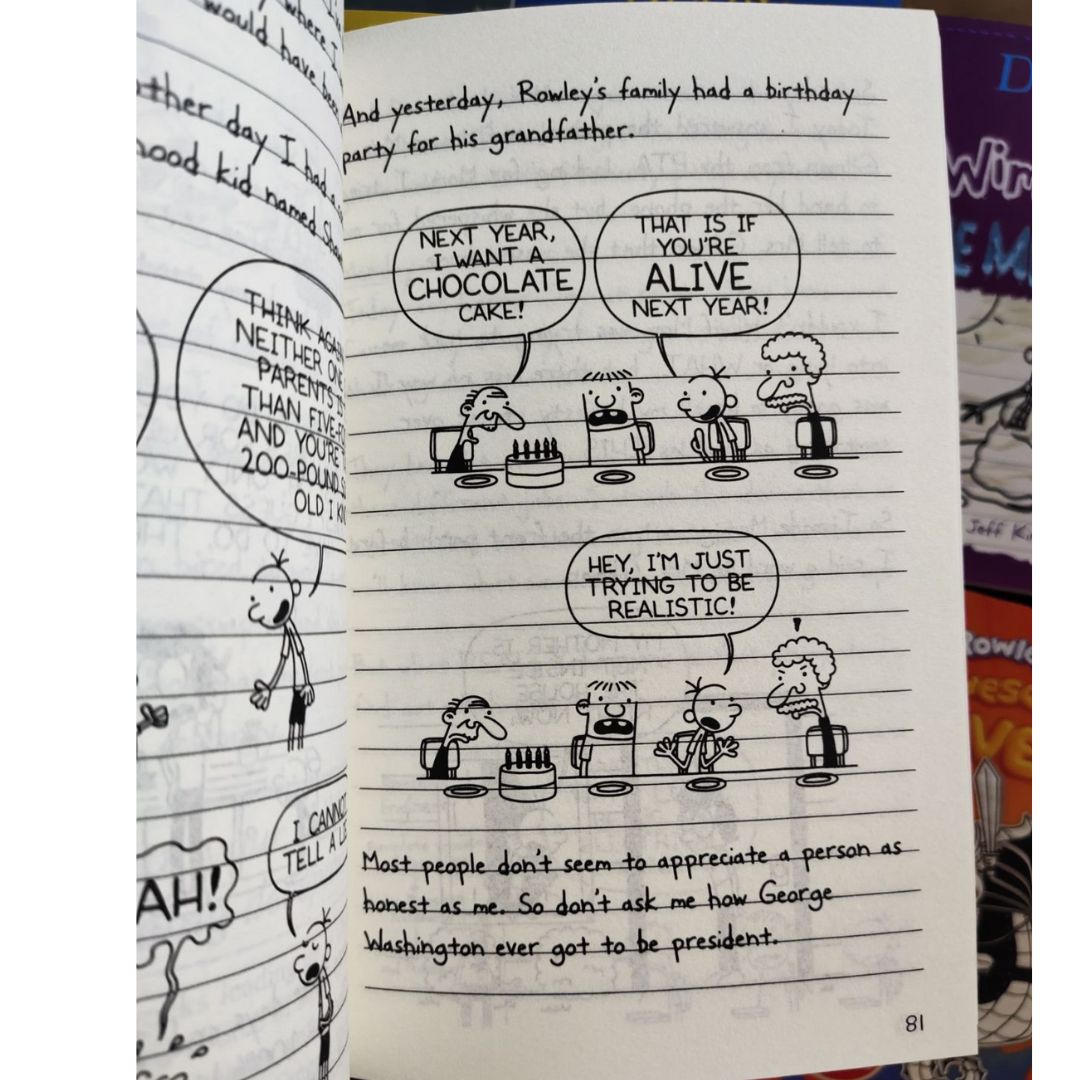 where I
would have been
other day I had a
hood kid named
THINK AGAIN
NEITHER ONE
PARENTS IS
THAN FIVE-FO
AND YOU'RE
200-POUND
OLD I KN
I CANNOT
TELL A LIE
AH!
And yesterday, Rowley's family had a birthday
party for his grandfather.
NEXT YEAR,
I WANT A
CHOCOLATE
CAKE!
THAT IS IF
YOU'RE
ALIVE
NEXT YEAR!
HEY, I'M JUST
TRYING TO BE
REALISTIC!
Most people don't seem to appreciate a person as
honest as me. So don't ask me how George
Washington ever got to be president.
81
D
Wim
E M
Jeff Ki
Rowle